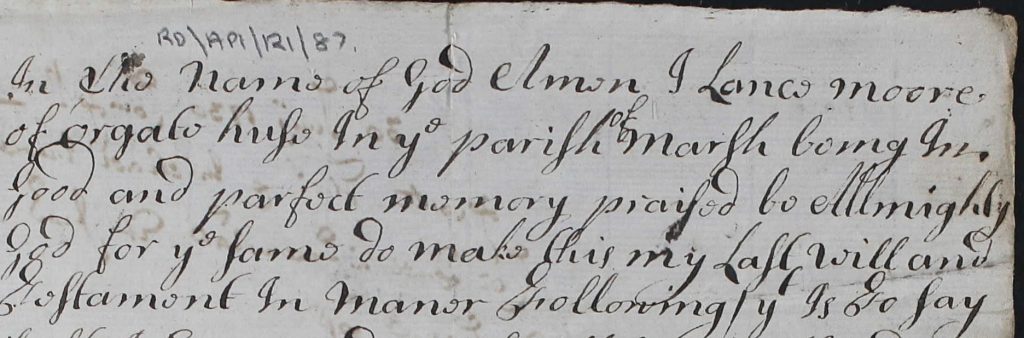 RD\AP1/121/87.
In the Name of God Amen I Lance moore
of orgate huse In ye parish of Marsh being In
good and parfect memory praised be Allmighty
God for ye same do make this my Last will and
Testament In Maner Following yt Is To say